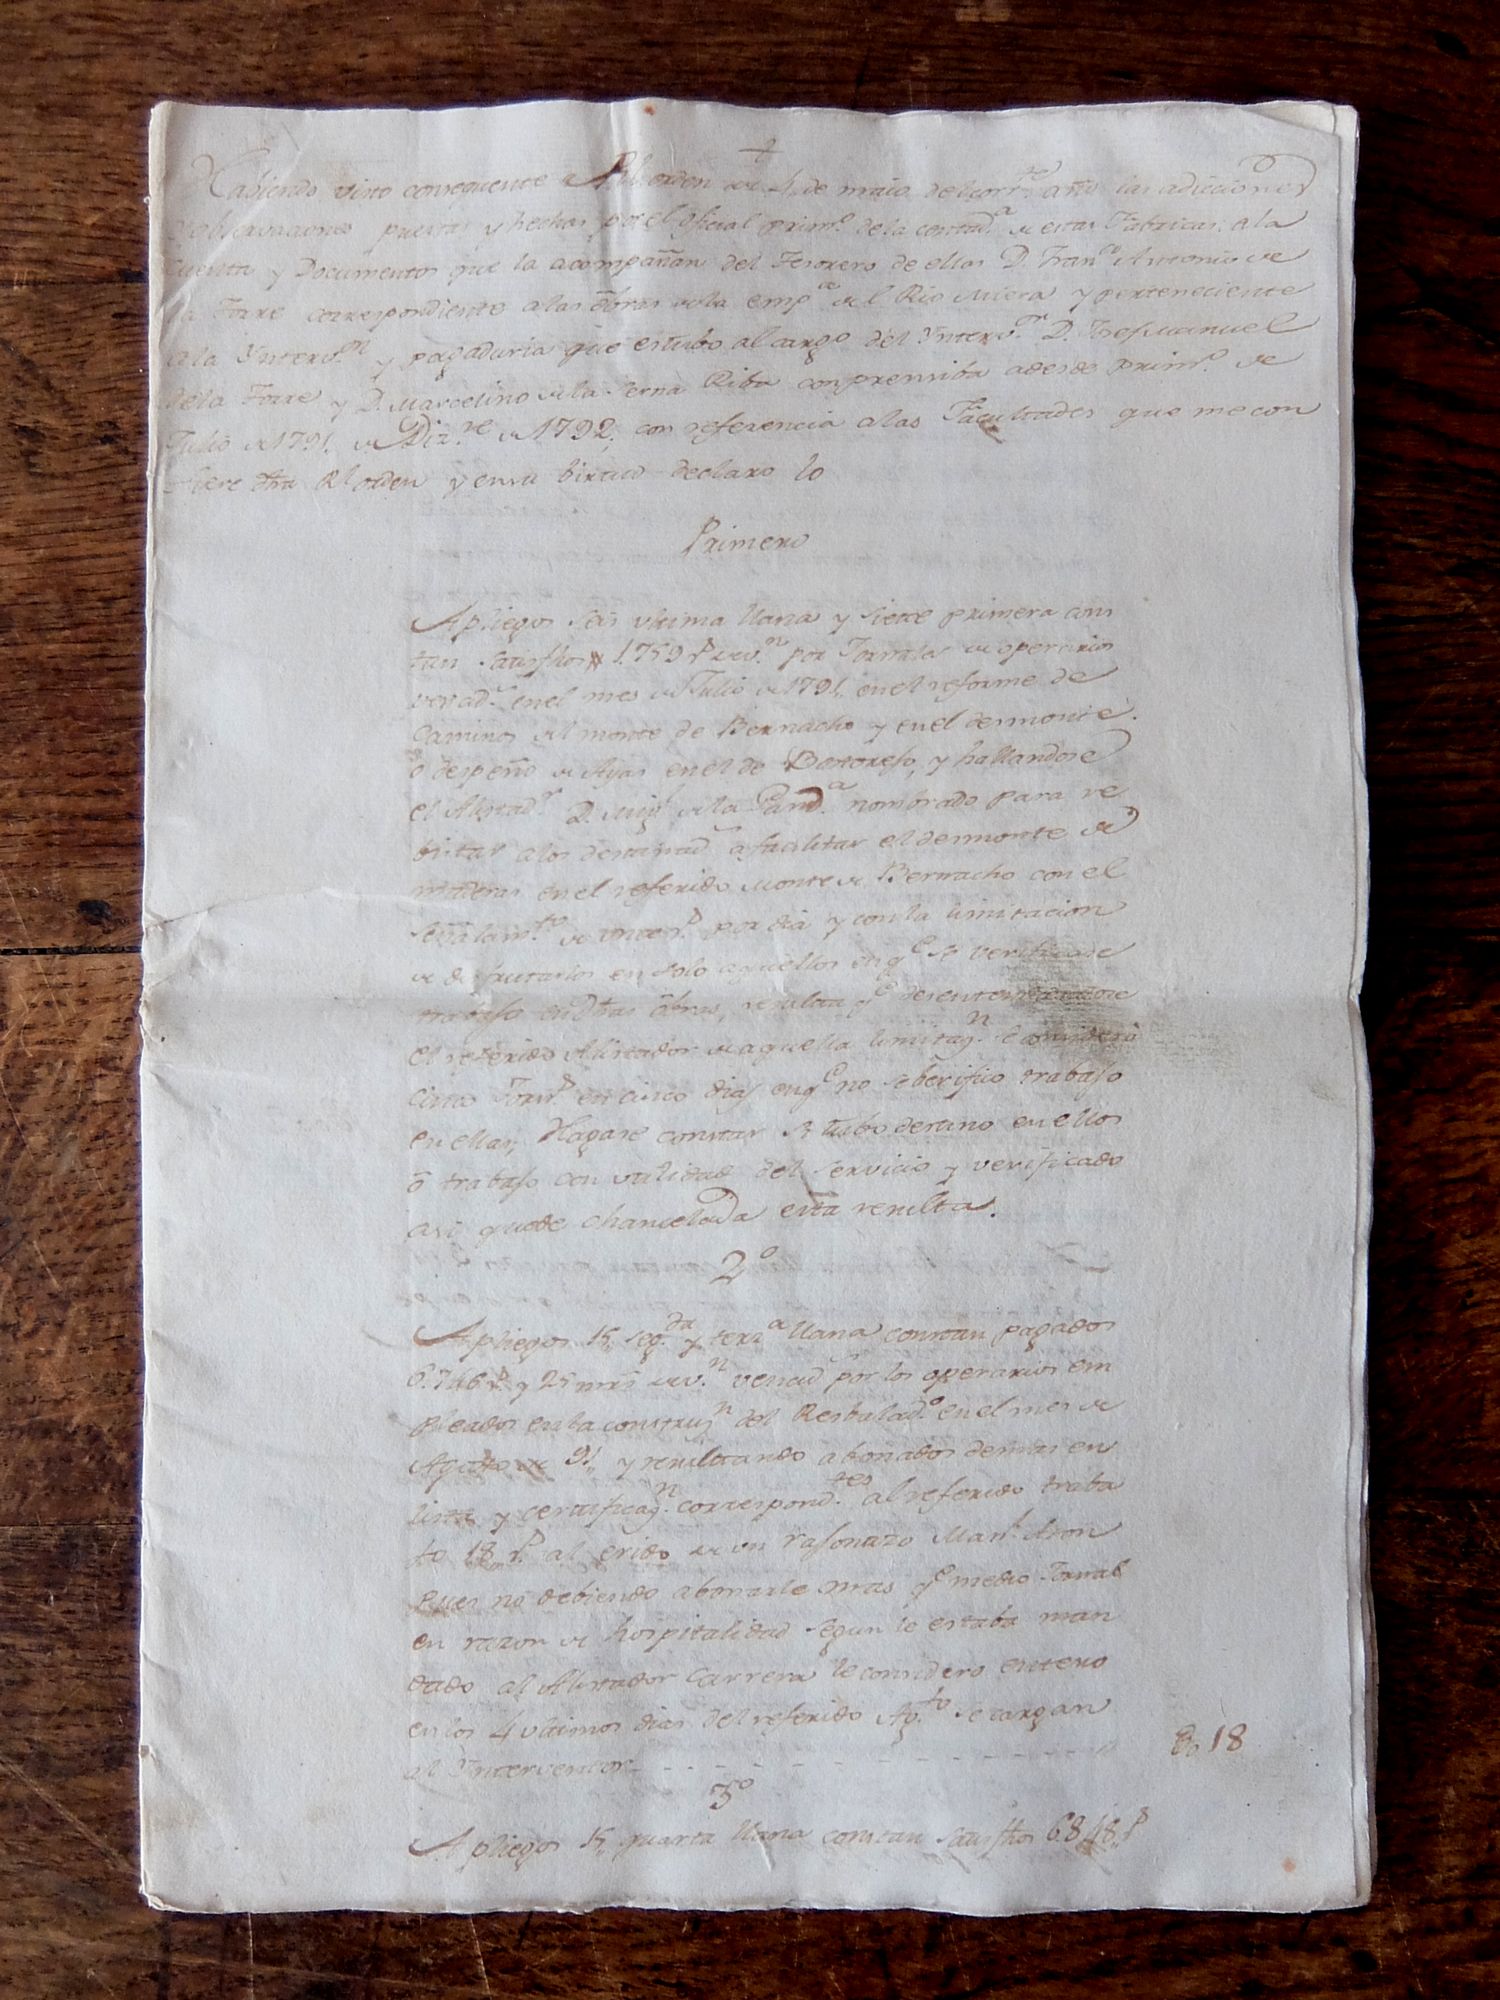 +
Habiendo visto conseguente a Rl orden de 4 de maio del corr.te año las adicciones
y observaciones puestas y hechas por el oficial prim.o de la contad.a de estas Fabricas, a la
Cuenta y Documentos que la acompañan del Tesorero de ellas D. Fran.co Antonio de
la Torre correspondiente a las obras de la emp.sa del Rio Miera y perteneciente
a la Ynterv.on y pagaduria que estubo al cargo del Ynterv.or D. Josef Manuel
de la Torre y D. Marcelino de la Serna Riba conprensiba desde prim.o de
Julio de 1791, a Diz.re de 1792, con referencia a las Facultades que me con
fiere dha Rl orden y en su birtud declaro lo
Primero
A pliegos seis vltima llana y siete primera cons
tan satisfhos 1.759 r.s de v.n por Jornales de operarios
vencid.s en el mes de Julio de 1791, en el reforme de
Caminos del monte de Bernacho y en el desmonte
o despeño de Ayas en el de , y hallandose
el Alistad.r D. Mig.l de la nombrado para re
bistar a los destinad.s a facilitar el desmonte de
maderas en el referido Monte de Bernacho con el
señalam.to de once r.s por dia y con la limitacion
de disfrutarlos en solo aquellos en q.e se verificase
trabajo en dhas obras, resulta q.e desentendiendose
el referido Alistador de aquella limitaz.n se considerò
cinco Jorn.s en cinco dias en q.e no se berifico trabajo
en ellas, Hagase constar si tubo destino en ellos
ò trabajo con validad del servicio y verificado
asi quede chancelada esta resulta.
2.o
A pliegos 15, seg.da y terz.a llana constan pagados
6.746 r.s y 25 mrs de v.n vencid.s por los operarios em
pleados en la construz.n del Resbalad.o en el mes de
Agosto de 91, y resultando abonados demas en
lista y certificaz.n correspond.tes al referido traba
jo 18 r.s al erido de un rasonazo Man.l Aron
pues no debiendo abonarle mas q.e medio Jornal
en razon de hospitalidad segun le estaba man
dado al Alistador Carrera le considero entero
en los 4 vltimos dias del referido Ag.to se cargan
al Ynterventor - - - - - - - - - - - 18
3.o
A pliegos 15, quarta llana constan satisfhos 6848, r.s